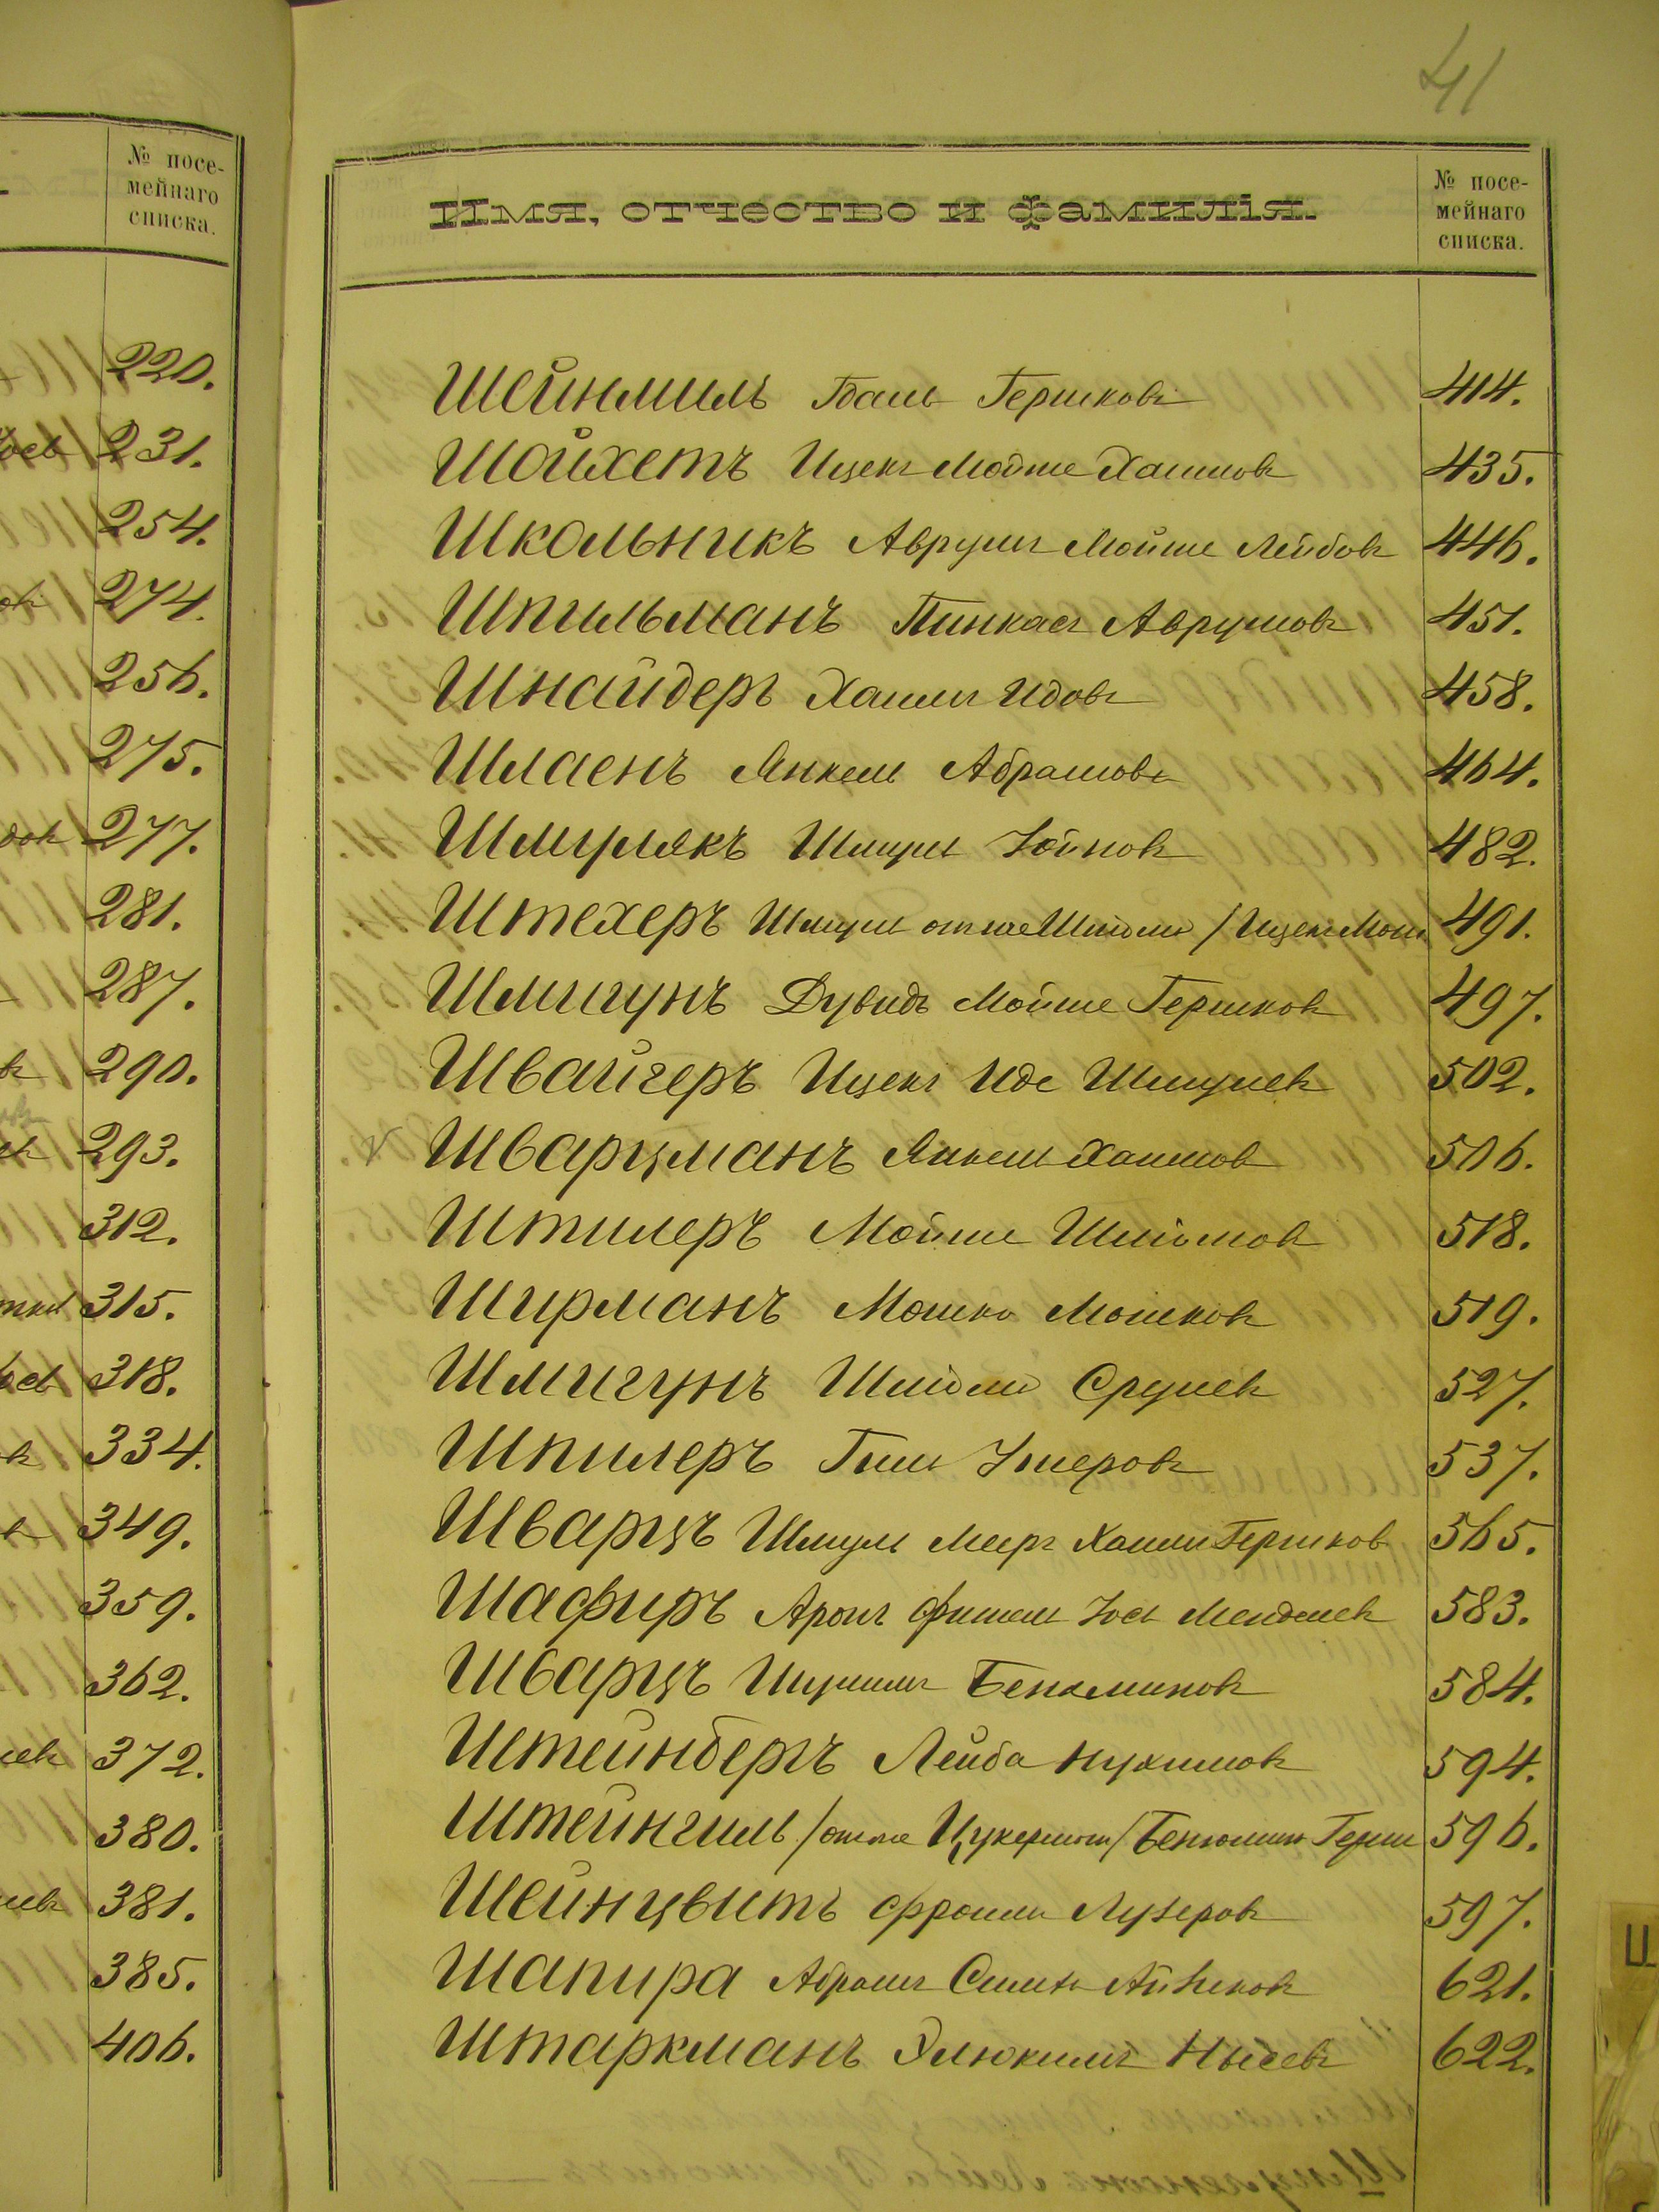 41
№ посе-
мейнаго
списка.
220.
231.
254.
274.
256.
275.
277.
281.
287.
290.
293.
312.
315.
318.
334.
349.
359.
362.
372.
380.
381.
385.
406.
Имя, отчество и фамилія.
№ посе-
мейнаго
списка.
Шейнмиль Гдаль Гершковъ 414.
Шойхетъ Ицекъ Мойше Хаимовъ 435.
Школьникъ Аврумъ Мойше Лейбовъ 446.
Шпильманъ Пинкасъ Аврумовъ 451.
Шнайдеръ Хаимъ Идовъ 458.
Шлаенъ Янкель Абрамовъ 464.
Шмурякъ Шмуль Іойновъ 482.
Штехеръ Шмуль онъ же Шлойме / Ицекъ 491.
Шмигунъ Дувидъ Мойше Гершковъ 497.
Швайгеръ Ицекъ Иде Шмулевъ 502.
Шварцманъ Янкель Хаимовъ 506.
Штилеръ Мойше Шлиомовъ 518.
Ширманъ Мошко Мошковъ 519.
Шмигунъ Шлиома Срулевъ 527.
Шпилеръ Ушеровъ 537.
Шварцъ Шмуль Мееръ Хаимъ Гершковъ 565.
Шафиръ Аронъ Фишель Іось Менделевъ 583.
Шварцъ Беньяминовъ 584.
Штейнбергъ Лейба Нухимовъ 594.
Штейнгиль /онъ же Цукерманъ/ Бенюминъ Герш 596.
Шейнцвитъ Фроимъ Лузеровъ 597.
Шапира Абрамъ Айзиковъ 621.
Штаркманъ Элюкимъ Нысевъ 622.